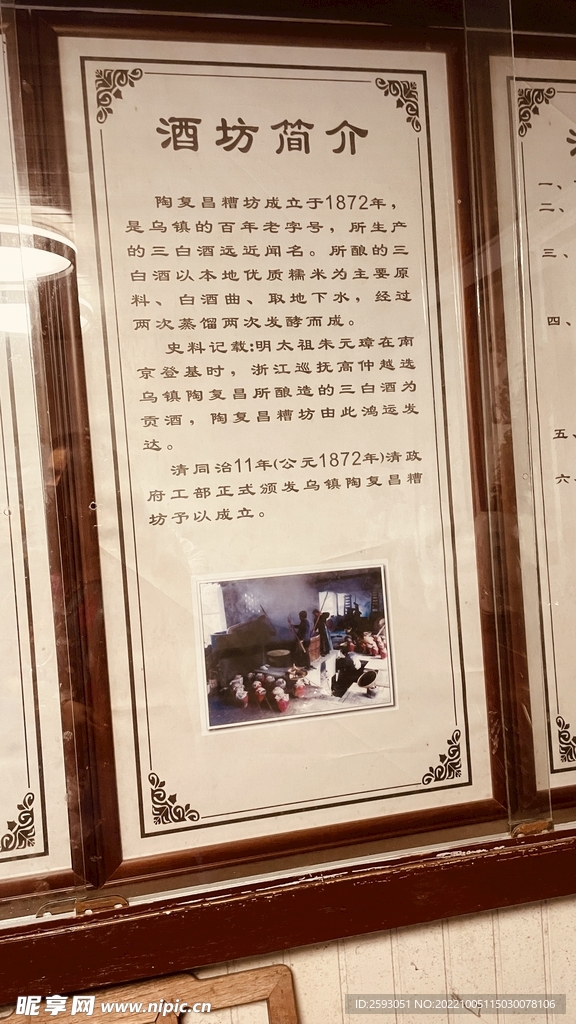 酒坊简介
陶复昌糟坊成立于1872年，
是乌镇的百年老字号，所生产
的三白酒远近闻名。所酿的三
白酒以本地优质糯米为主要原
料、白酒曲、取地下水，经过
两次蒸馏两次发酵而成。
史料记载:明太祖朱元璋在南
京登基时，浙江巡抚高仲越选
乌镇陶复昌所酿造的三白酒为
贡酒，陶复昌糟坊由此鸿运发
达。
清同治11年(公元1872年)清政
府工部正式颁发乌镇陶复昌糟
坊予以成立。
一、
二、
三、
四、
五、
六、
昵享网 www.nipic.cn
ID:2593051 NO:20221005115030078106